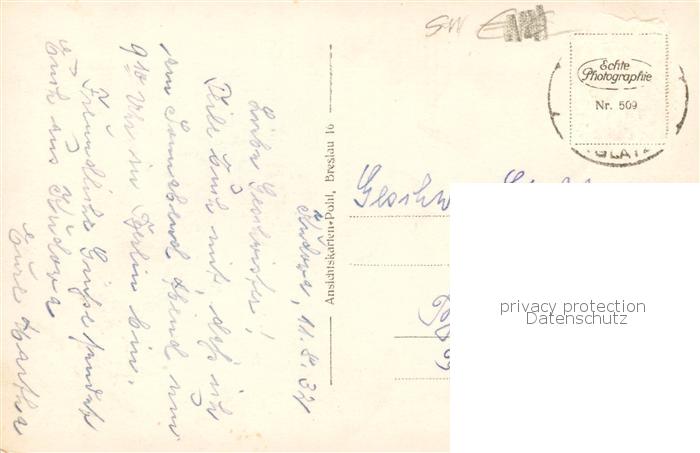 SW
Echte
Photographie
Nr. 509
GLATZ
Ansichtskarten-Pohl, Breslau 16
Kudowa, 11.8.37
Liebe Geschwister!
Teile Euch mit, daß ich
am Sonnabend Abend um
9 Uhr in Berlin bin.
Freundliche Grüße sendet
Euch aus Kudowa
Eure Martha
Geschw.
privacy protection
Datenschutz